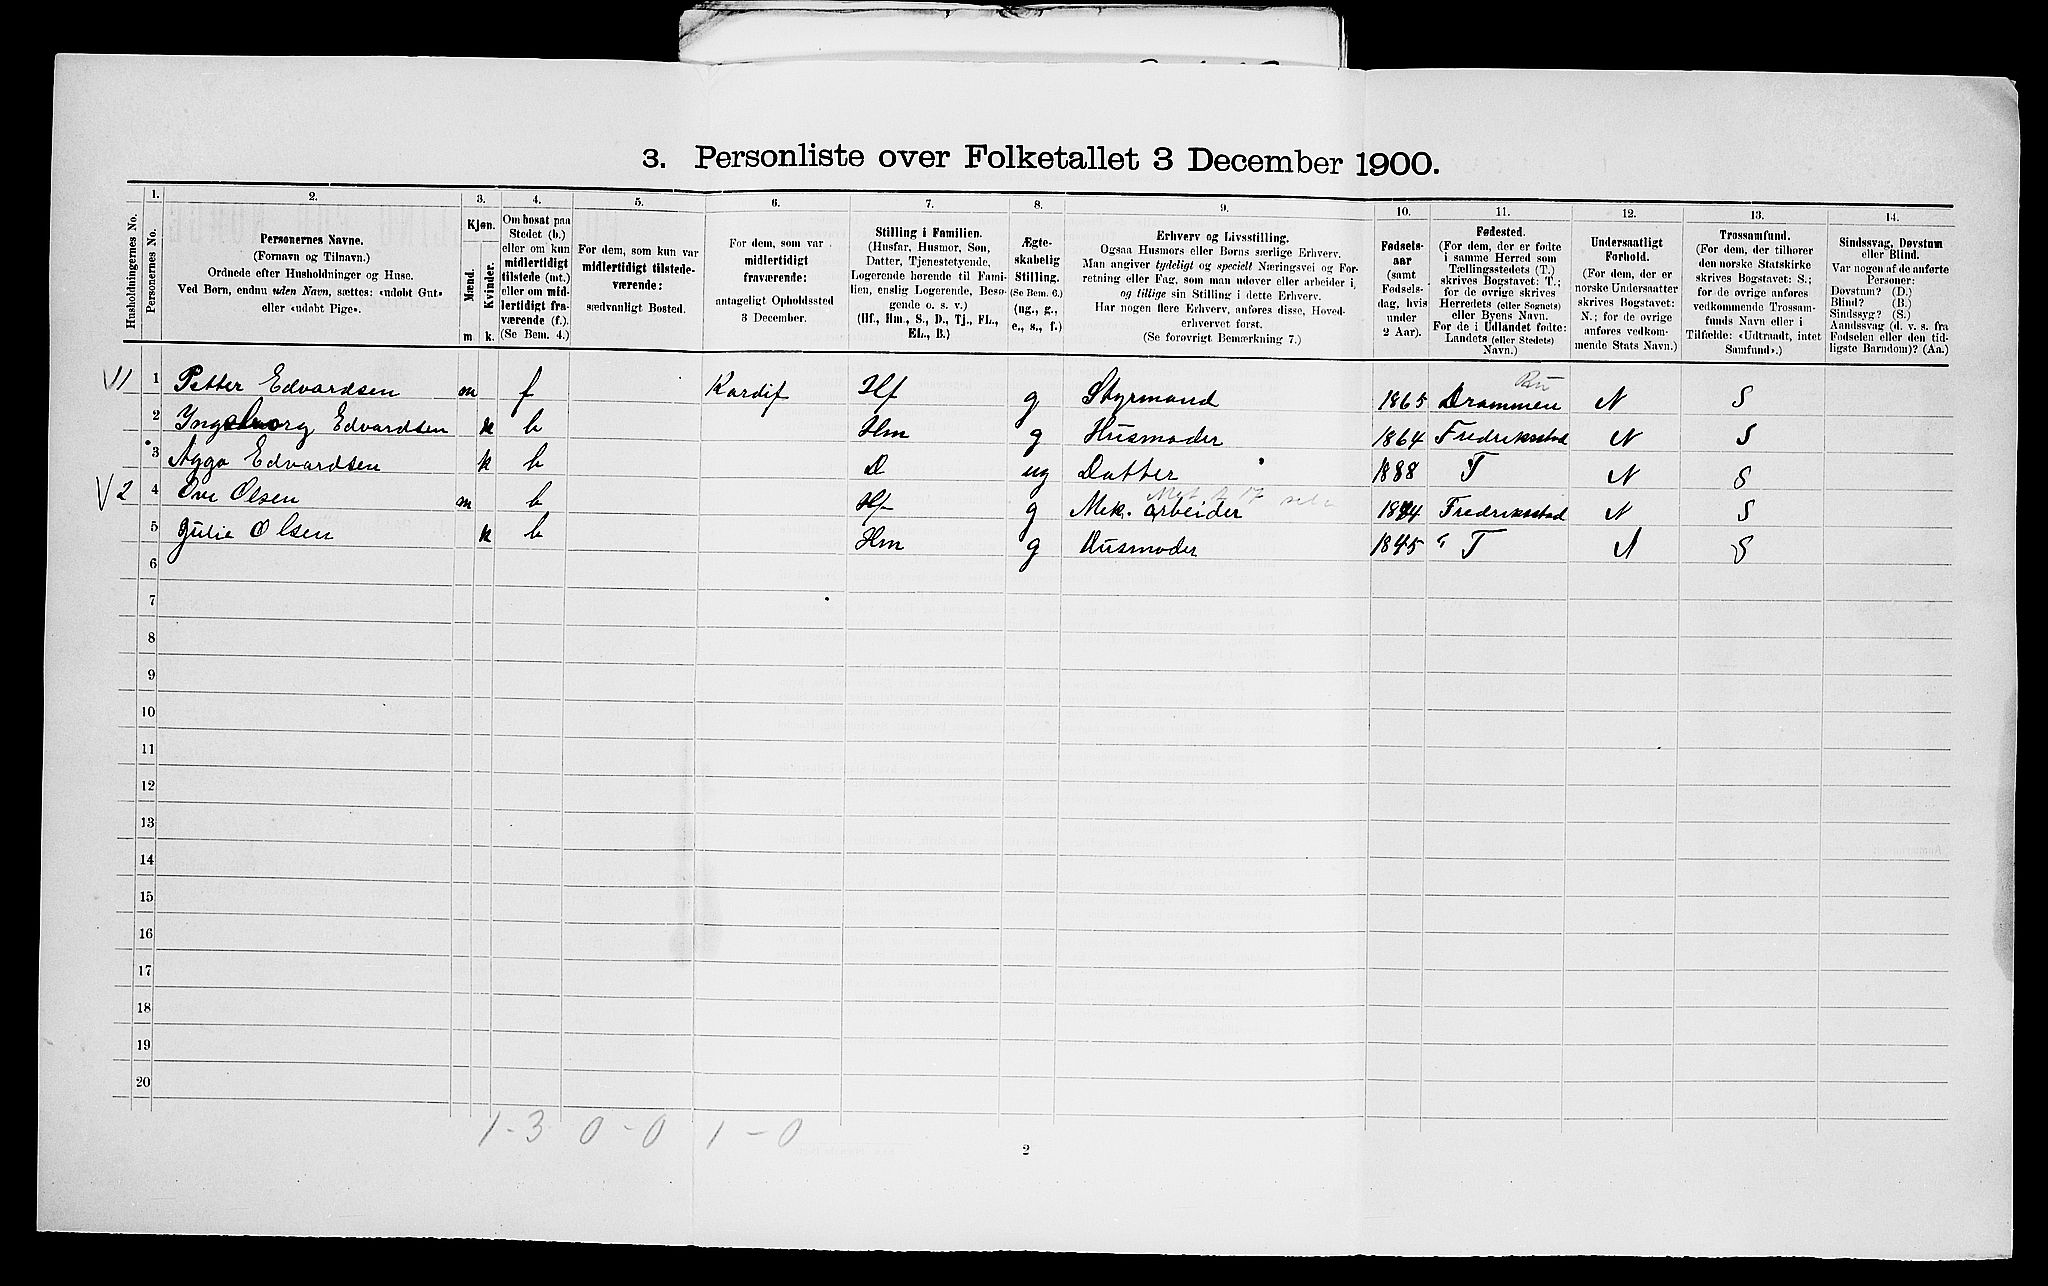 3. Personliste over Folketallet 3 December 1900.
Husholdningernes No.
1.
Personernes No.
2.
Personernes Navne.
(Fornavn og Tilnavn.)
Ordnede efter Husholdninger og Huse.
Ved Børn, endnu uden Navn, sættes: «udøbt Gut»
eller «udøbt Pige».
3.
Kjøn.
Mænd.
Kvinder.
m.
k.
4.
Om bosat paa
Stedet (b.)
eller om kun
midlertidigt
tilstede (mt.)
eller om mid-
lertidigt fra-
værende (f.).
(Se Bem. 4.)
5.
For dem, som kun var
midlertidigt tilstede-
værende:
sædvanligt Bosted.
6.
For dem, som var
midlertidigt
fraværende:
antageligt Opholdssted
3 December.
7.
Stilling i Familien.
(Husfar, Husmor, Søn,
Datter, Tjenestetyende,
Logerende hørende til Fami-
lien, enslig Logerende, Besø-
gende o. s. v.)
(Hf., Hm., S., D., Tj., FL.,
EL., B.)
8.
Ægte-
skabelig
Stilling.
(Se Bem. 6.)
(ug., g.,
e., s., f.)
9.
Erhverv og Livsstilling.
Ogsaa Husmors eller Børns særlige Erhverv.
Man angiver tydeligt og specielt Næringsvei og For-
retning eller Fag, som man udøver eller arbeider i,
og tillige sin Stilling i dette Erhverv.
Har nogen flere Erhverv, anføres disse, Hoved-
erhvervet først.
(Se forøvrigt Bemærkning 7.)
10.
Fødsels-
aar
(samt
Fødsels-
dag, hvis
under
2 Aar).
11.
Fødested.
(For dem, der er fødte
i samme Herred som
Tællingsstedets (T.)
skrives Bogstavet: T.;
for de øvrige skrives
Herredets (eller Sognets)
eller Byens Navn.
For de i Udlandet fødte:
Landets (eller Stedets)
Navn.)
12.
Undersaatligt
Forhold.
(For dem, der er
norske Undersaatter
skrives Bogstavet:
N.; for de øvrige
anføres vedkom-
mende Stats Navn.)
13.
Trossamfund.
(For dem, der tilhører
den norske Statskirke
skrives Bogstavet: S.;
for de øvrige anføres
vedkommende Trossam-
funds Navn eller i
Tilfælde: «Udtraadt, intet
Samfund».)
14.
Sindssvag, Døvstum
eller Blind.
Var nogen af de anførte
Personer:
Døvstum? (D.)
Blind? (B.)
Sindssyg? (S.)
Aandssvag (d. v. s. fra
Fødselen eller den tid-
ligste Barndom)? (Aa.)
1 1 Petter Edvardsen m f Kardif Hf g Styrmand 1865 Drammen N S
2 Ingeborg Edvardsen k b Hm g Husmoder 1864 Fredriksstad N S
3 Agga Edvardsen k b D ug Datter 1888 T N S
2 4 Ove Olsen m b Hf g Mek. arbeider Fredriksstad N S
5 Julie Olsen k b Hm g Husmoder 1845 T N S
6
7
8
9
10
11
12
13
14
15
16
17
18
19
20
1-3 0-0 1-0
2